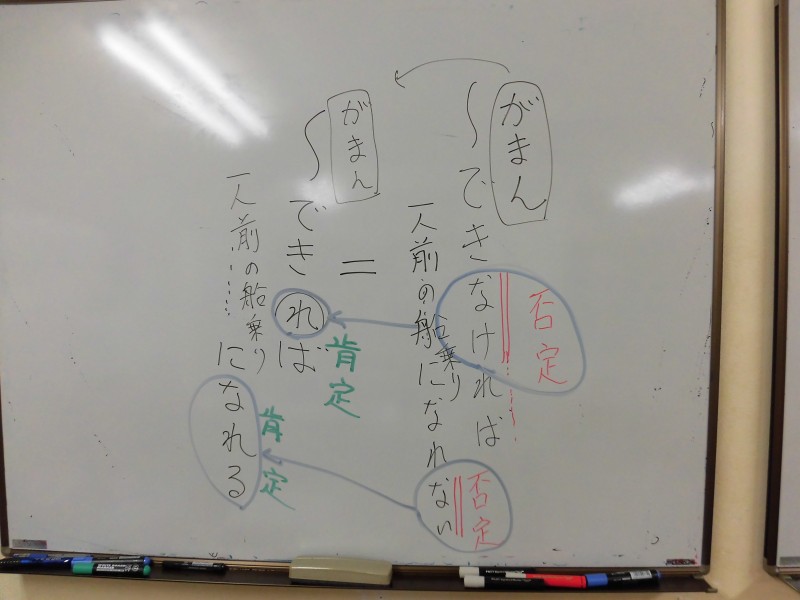 がまん
できなければ
否定
一人前の船乗りになれない
否定
＝
がまん
できれば
肯定
一人前の船乗りになれる
肯定